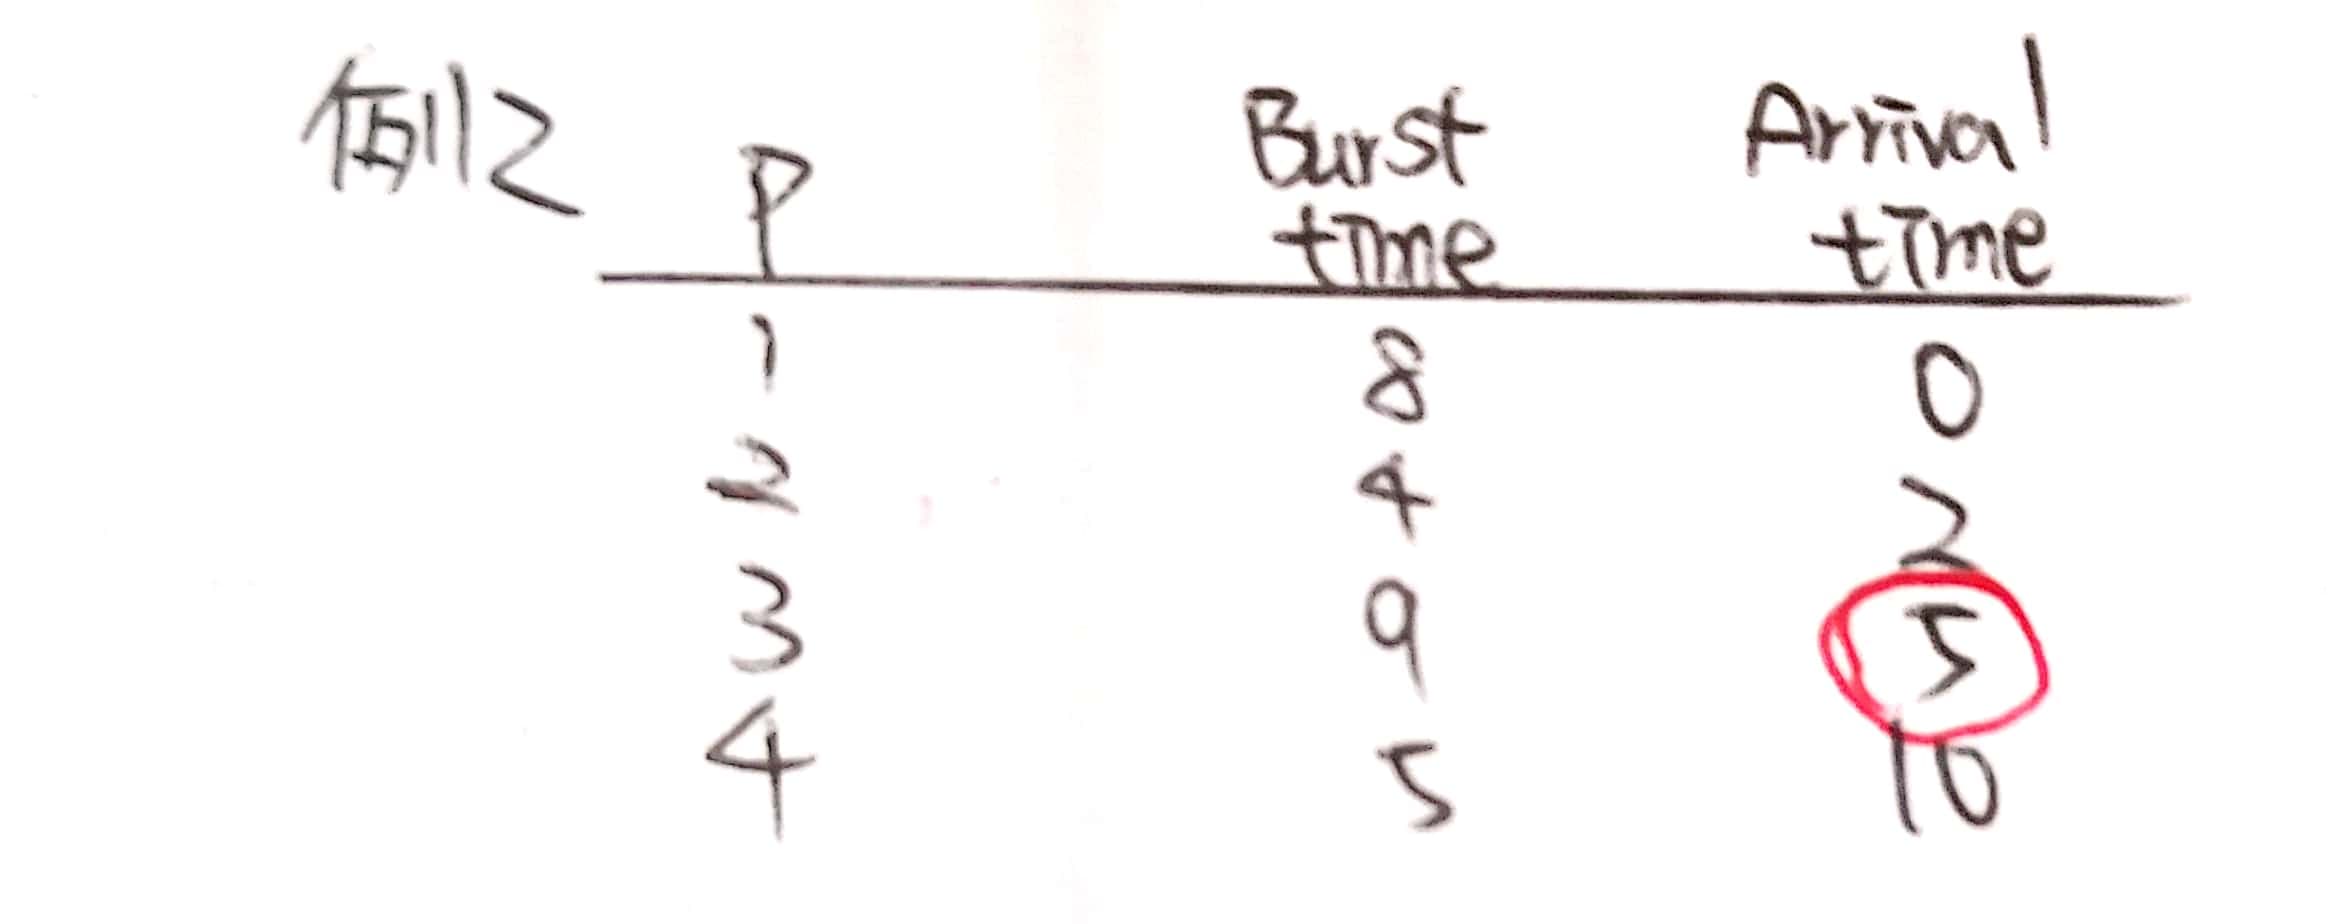 例2 P Burst time Arrival time
1 8 0
2 4 2
3 9 5
4 5 10